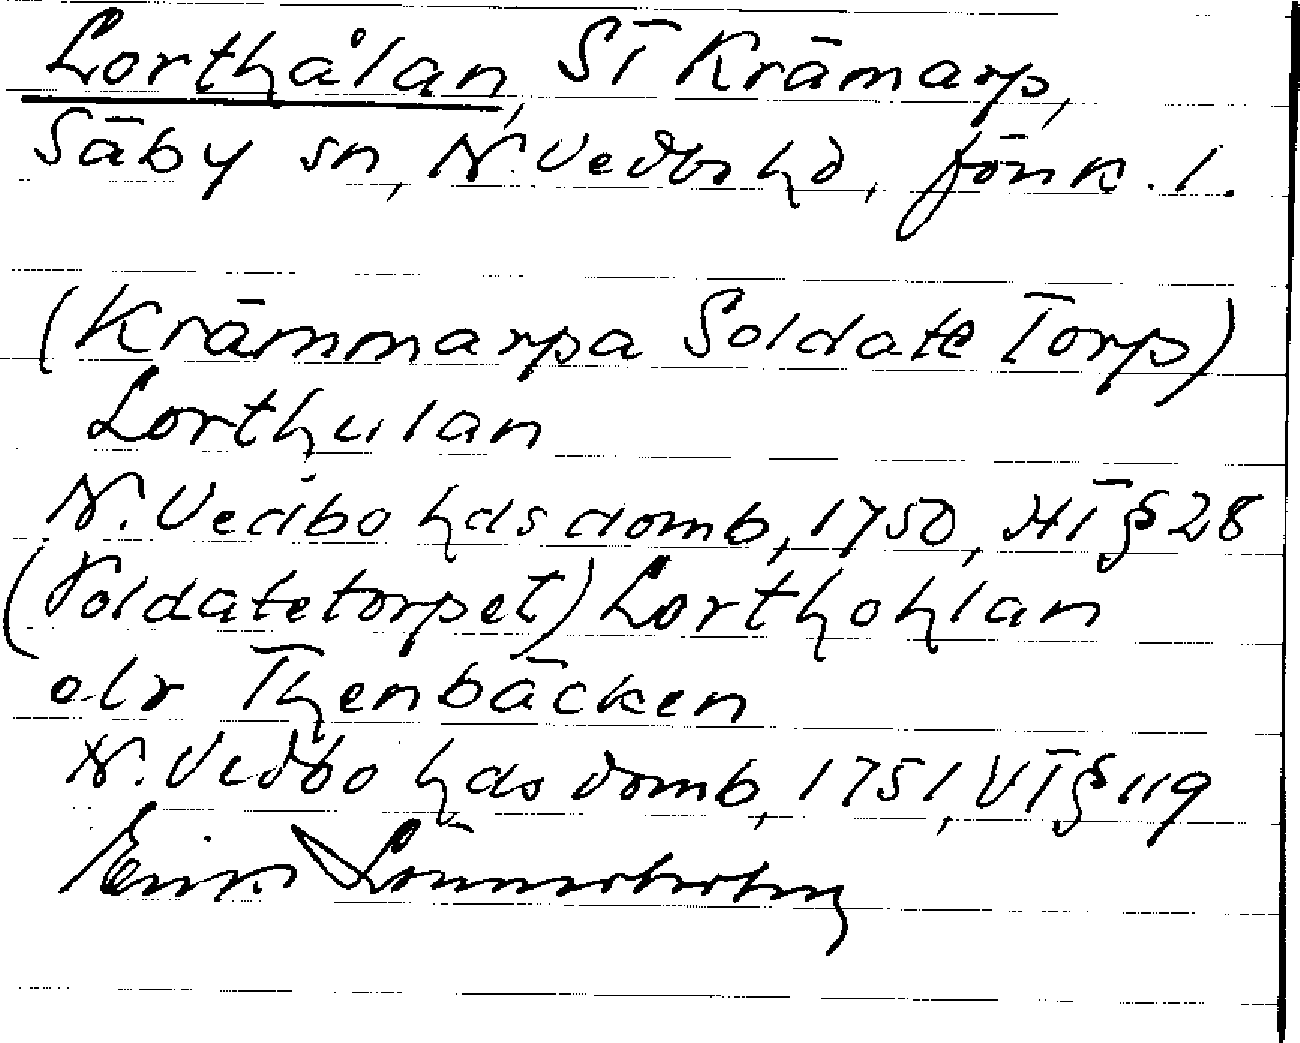 Lorthålan, St Krämarp,
Säby sn, N. Vedbo hd, Jönk. l.
(Krämmarpa Soldate Torp)
Lorthulan
N. Vedbo hds domb, 1750, HT § 28
(Soldatetorpet) Lorthohlan
elr Thenbäcken
N. Vedbo hds domb, 1751, VT § 119